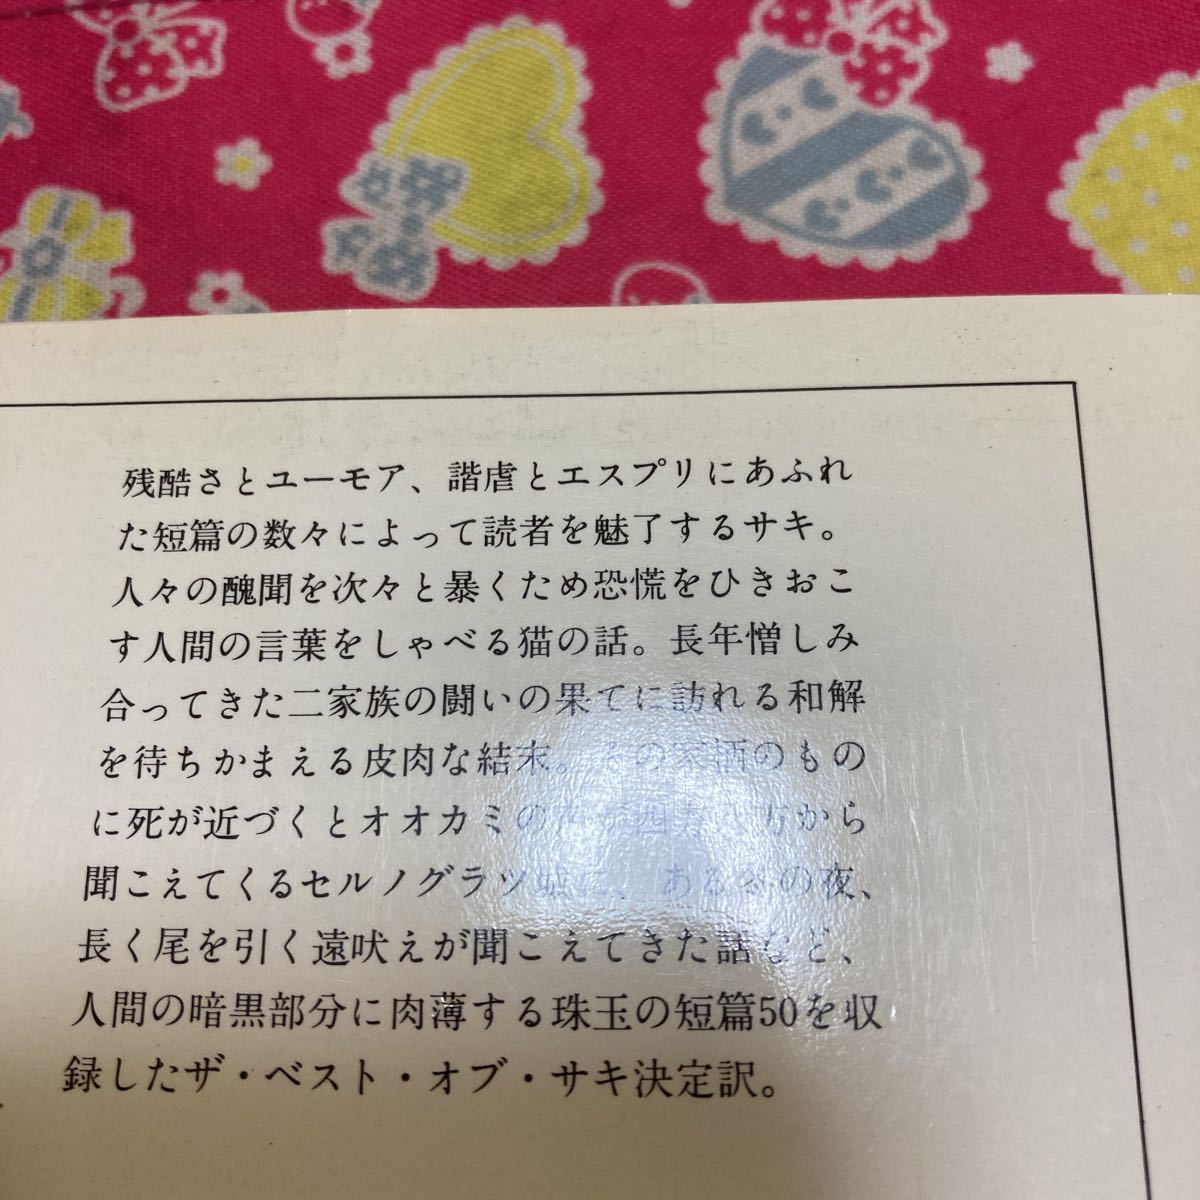 残酷さとユーモア、諧虐とエスプリにあふれ
た短篇の数々によって読者を魅了するサキ。
人々の醜聞を次々と暴くため恐慌をひきおこ
す人間の言葉をしゃべる猫の話。長年憎しみ
合ってきた二家族の闘いの果てに訪れる和解
を待ちかまえる皮肉な結末。その家柄のもの
に死が近づくとオオカミの声が四方八方から
聞こえてくるセルノグラツ城に、ある冬の夜、
長く尾を引く遠吠えが聞こえてきた話など、
人間の暗黒部分に肉薄する珠玉の短篇50を収
録したザ・ベスト・オブ・サキ決定訳。